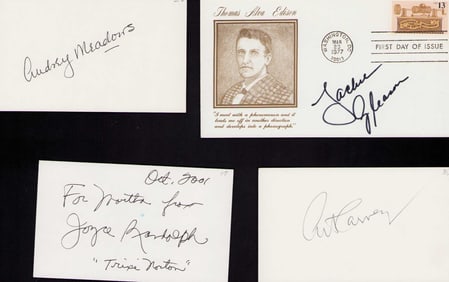 Audrey Meadows
Thomas Alva Edison
"I met with a phenomenon and it
leads me off in another direction
and develops into a phonograph."
WASHINGTON, DC
MAR
23
1977
13
FIRST DAY OF ISSUE
Jackie
Gleason
Oct. 2001
For Martha from
Joyce Randolph
"Trixie Norton"
Art Carney